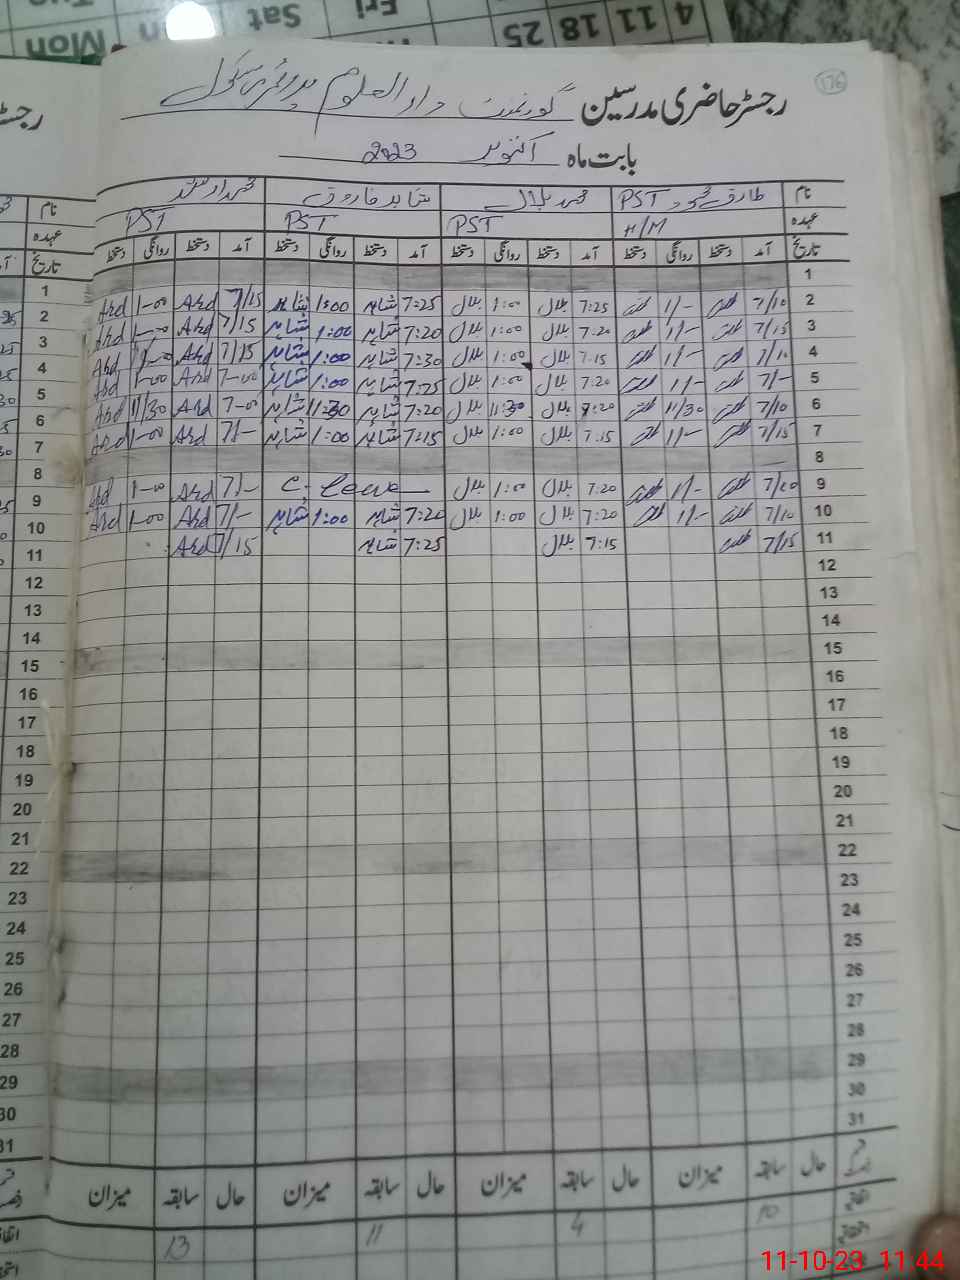 Sat Fri
Mon 25 18 11 4
176
رجسٹر حاضری مدرسین گورنمنٹ دارالعلوم پرائمری سکول
بابت ماہ اکتوبر 2023
نام طارق محمود PST محمد بلال شاہد فاروق
عہدہ H/M PST PST PST
تاریخ آمد دستخط روانگی دستخط آمد دستخط روانگی دستخط آمد دستخط روانگی دستخط آمد دستخط روانگی دستخط
1
2 7/10 1/- 7:25 بلال 1:00 بلال 7:25 شاہد 1:00 شاہد 7/15 Ard 1-00 Ard
3 7/15 1/- 7:20 بلال 1:00 بلال 7:20 شاہد 1:00 شاہد 7/15 Ard 1-00 Ard
4 7/10 1/- 7:15 بلال 1:00 بلال 7:30 شاہد 1:00 شاہد 7/15 Ard Ard
5 7/- 1/- 7:20 بلال 1:00 بلال 7:25 شاہد 1:00 شاہد 7-00 Ard 1-00 Ard
6 7/10 11/30 7:20 بلال 11:30 بلال 7:20 شاہد 11:30 شاہد 7-00 Ard 11/30 Ard
7 7/15 1/- 7:15 بلال 1:00 بلال 7:15 شاہد 1:00 شاہد 7/- Ard 1-00 Ard
8
9 1/- 7:20 بلال 1:00 بلال C-Leave 7/- Ard 1-00 Ard
10 7/10 1/- 7:20 بلال 1:00 بلال 7:20 شاہد 1:00 شاہد 7/- Ard 1-00 Ard
11 7/15 7:15 بلال 7:25 شاہد 7/15 Ard
12
13
14
15
16
17
18
19
20
21
22
23
24
25
26
27
28
29
30
31
حال سابقہ میزان حال سابقہ میزان حال سابقہ میزان حال سابقہ میزان
10 4 11 13
11-10-23 11:44